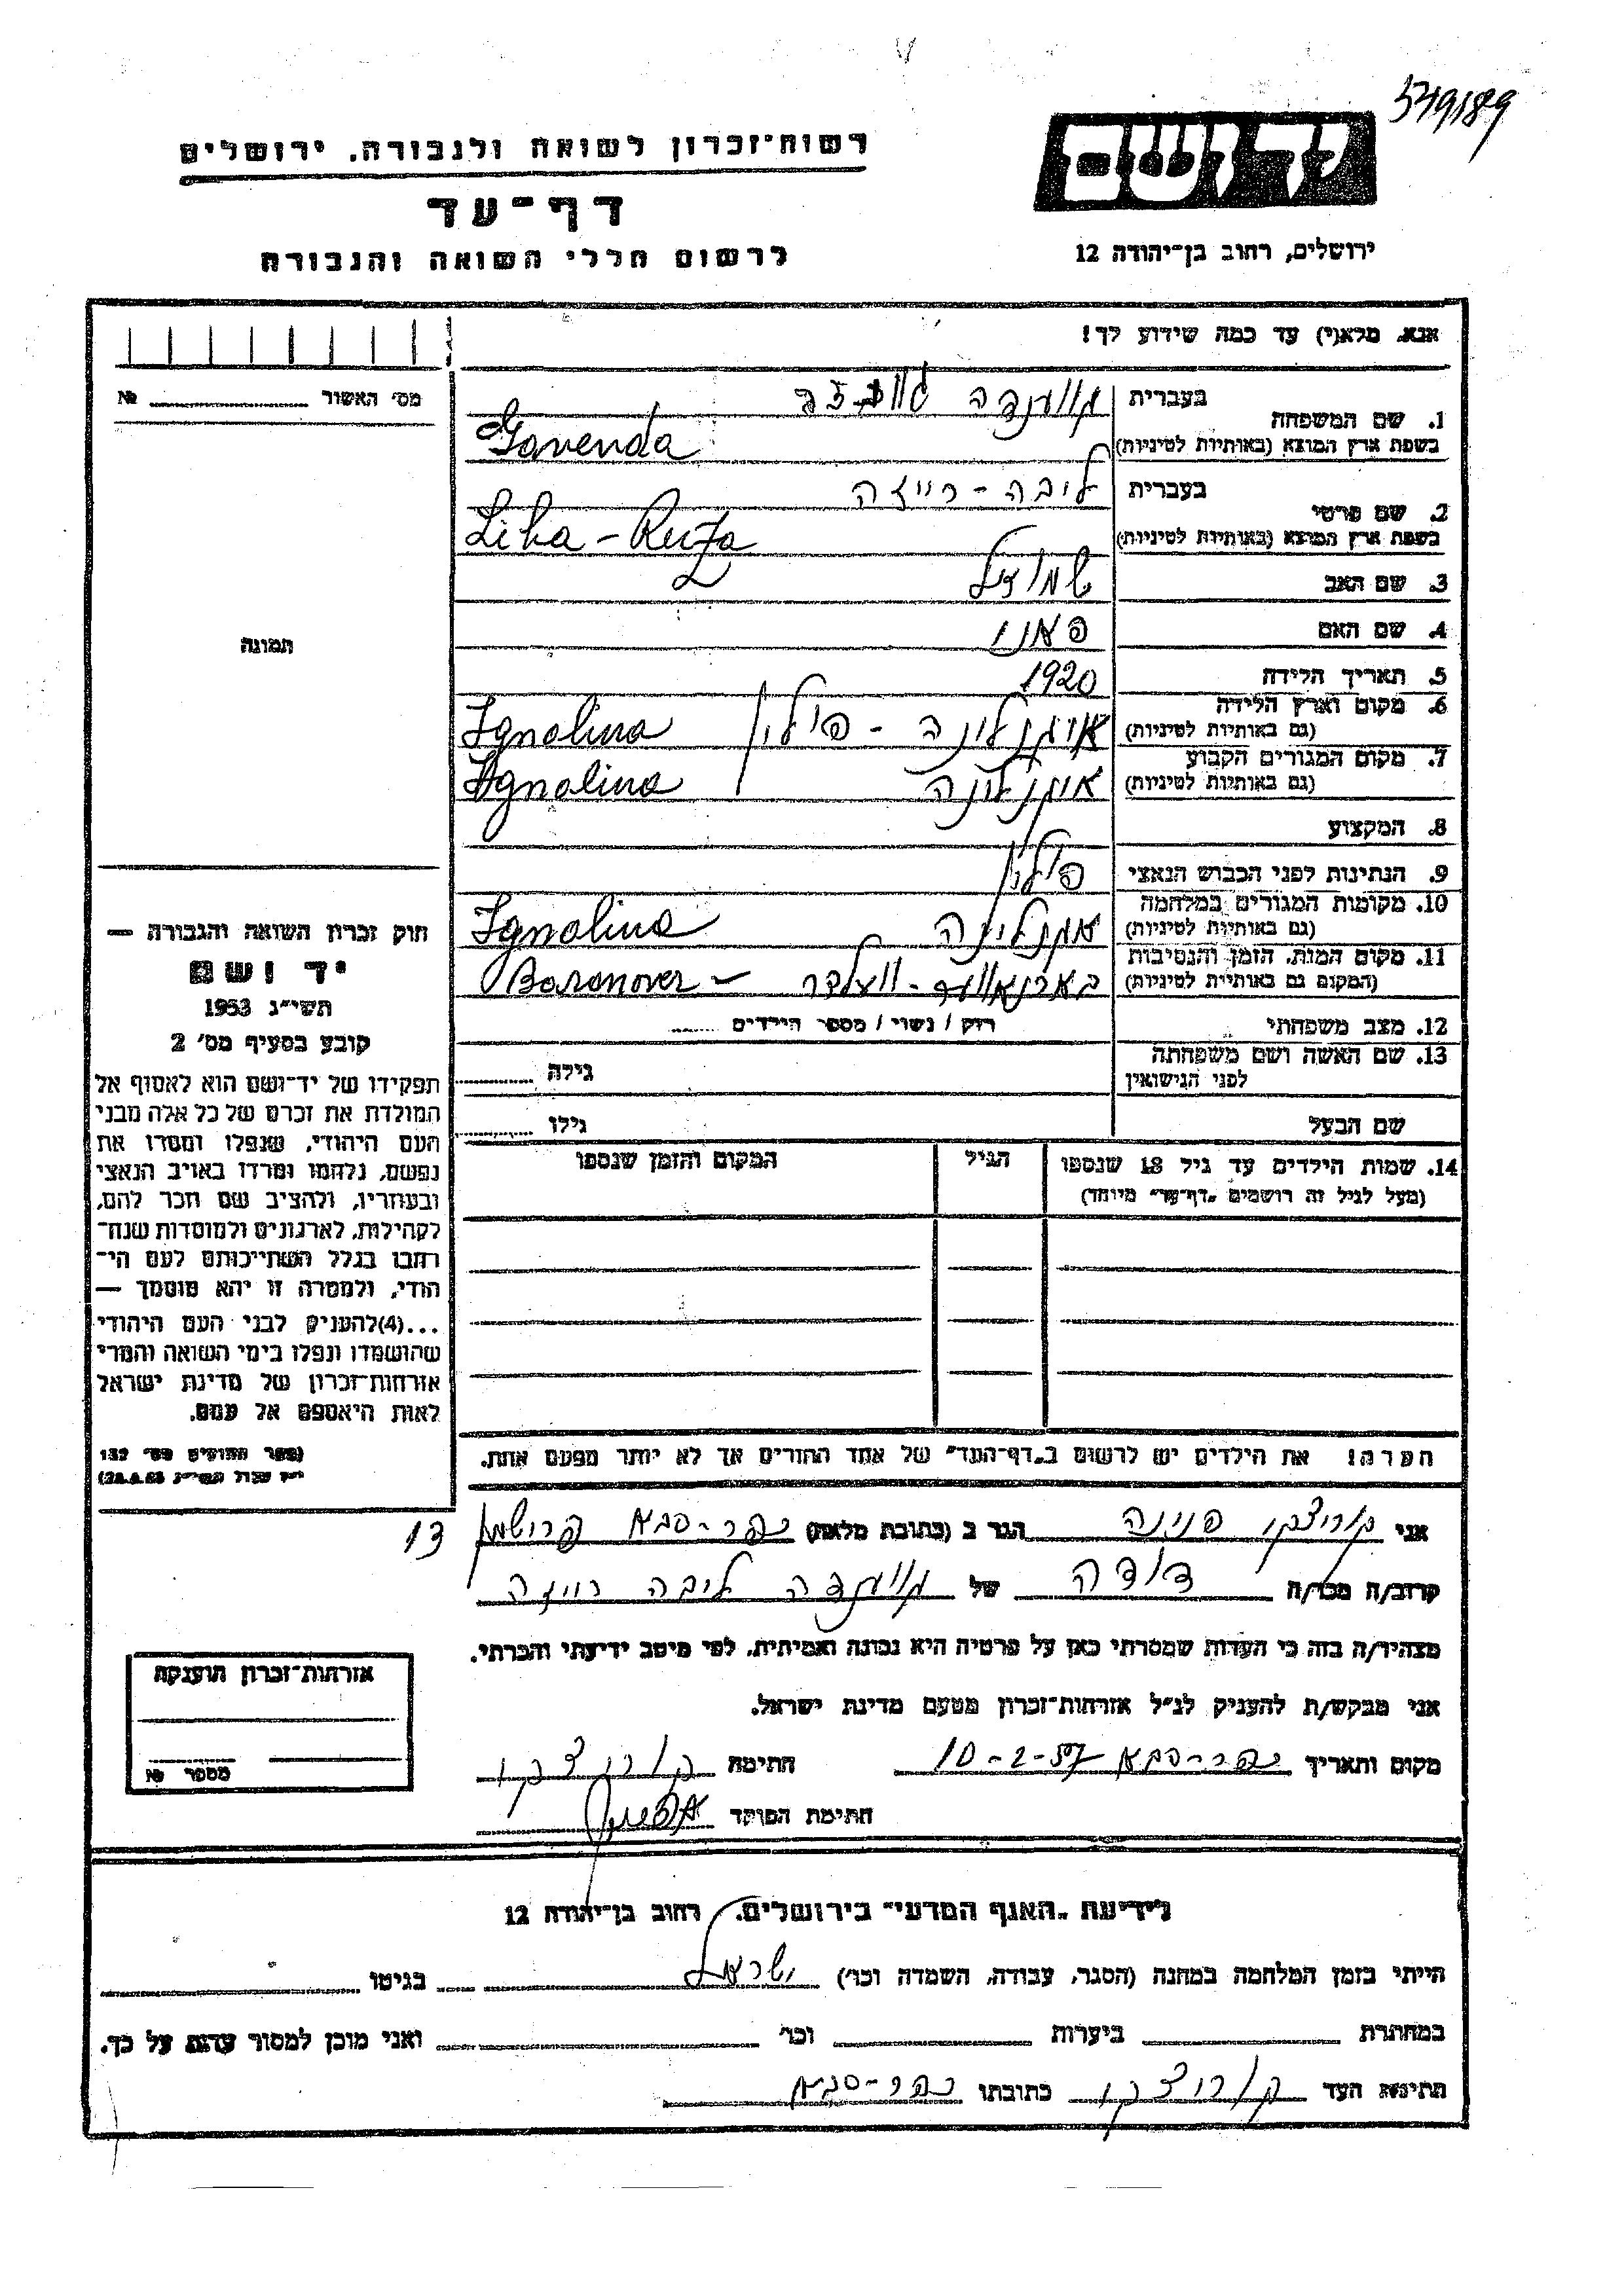 549189
יד ושם
ירושלים, רחוב בן־יהודה 12
רשות־זכרון לשואה ולגבורה. ירושלים
דף־עד
לרשום חללי השואה והגבורה
אנא. מלא(י) עד כמה שידוע לך!
מס׳ האשור № 
1. שם המשפחה
בעברית גווענדה
בשפת ארץ המוצא (באותיות לטיניות) Gavenda
2. שם פרטי
בעברית ליבה - רייזה
בשפת ארץ המוצא (באותיות לטיניות) Liba - Reiza
3. שם האב
4. שם האם פאני
5. תאריך הלידה 1920
6. מקום וארץ הלידה
(גם באותיות לטיניות) איגנלינה - פולין Ignolina
7. מקום המגורים הקבוע
(גם באותיות לטיניות) איגנלינה Ignolina
8. המקצוע
9. הנתינות לפני הכבוש הנאצי פולין
10. מקומות המגורים במלחמה
(גם באותיות לטיניות) איגנלינה Ignolina
11. מקום המות. הזמן והנסיבות
(המקום גם באותיות לטיניות) Baranover
12. מצב משפחתי רוק / נשוי / מספר הילדים
13. שם האשה ושם משפחתה
לפני הנישואין גילה
שם הבעל גילו
14. שמות הילדים עד גיל 18 שנספו
(מעל לגיל זה רושמים „דף־עד״ מיוחד)
הגיל
המקום והזמן שנספו
הערה! את הילדים יש לרשום ב„דף־העד״ של אחד ההורים אך לא יותר מפעם אחת.
תמונה
חוק זכרון השואה והגבורה —
יד ושם
תשי״ג 1953
קובע בסעיף מס׳ 2
תפקידו של יד־ושם הוא לאסוף אל
המולדת את זכרם של כל אלה מבני
העם היהודי, שנפלו ומסרו את
נפשם, נלחמו ומרדו באויב הנאצי
ובעוזריו, ולהציב שם וזכר להם,
לקהילות, לארגונים ולמוסדות שנח־
רבו בגלל השתייכותם לעם הי־
הודי, ולמטרה זו יהא מוסמך —
...(4)להעניק לבני העם היהודי
שהושמדו ונפלו בימי השואה והמרי
אזרחות־זכרון של מדינת ישראל
לאות היאספם אל עמם.
(ספר החוקים מס׳ 132
אני קוריצקי פנינה הגר ב (כתובת מלאה) כפר-סבא 13
קרוב/ה מכר/ה דודה של גווענדה ליבה רייזה
מצהיר/ה בזה כי העדות שמסרתי כאן על פרטיה היא נכונה ואמיתית. לפי מיטב ידיעתי והכרתי.
אני מבקש/ת להעניק לנ״ל אזרחות־זכרון מטעם מדינת ישראל.
מקום ותאריך כפר-סבא 10-2-57 חתימה קוריצקי
חתימת הפוקד
אזרחות־זכרון הוענקה
מספר №
לידיעת „האגף המדעי״ בירושלים. רחוב בן־יהודה 12
הייתי בזמן המלחמה במחנה (הסגר, עבודה, השמדה וכו׳) ישראל בגיטו
במחתרת ביערות וכו׳ ואני מוכן למסור עדות על כך.
חתימת העד קוריצקי כתובתו כפר-סבא